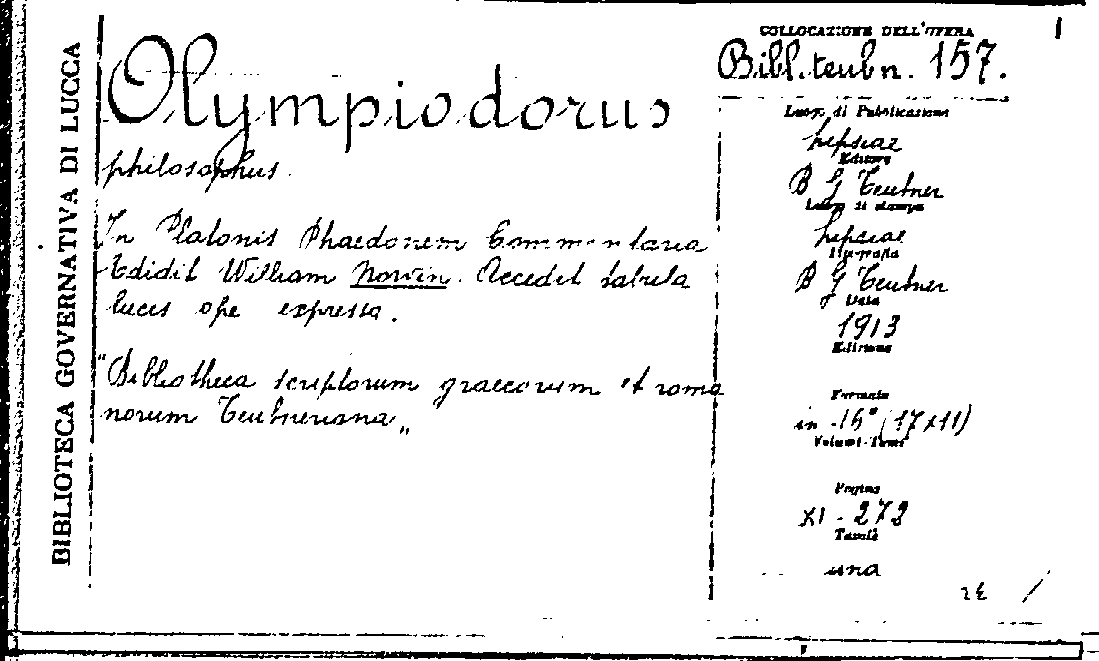 BIBLIOTECA GOVERNATIVA DI LUCCA
Olympiodorus
philosophus.
In Platonis Phaedonem Commentaria
Edidit William Norvin. Accedit tabula
lucis ope expressa.
"Bibliotheca scriptorum graecorum et roma
norum Teubneriana„
COLLOCAZIONE DELL'OPERA
1
Bibl. teubn. 157.
Luogo di Pubblicazione
Lipsiae
Editore
B G Teubner
Luogo di stampa
Lipsiae
Tipografia
B G Teubner
Data
1913
Edizione
Formato
in-16° (17x11)
Volumi-Tomi
Pagine
XI-272
Tavole
una